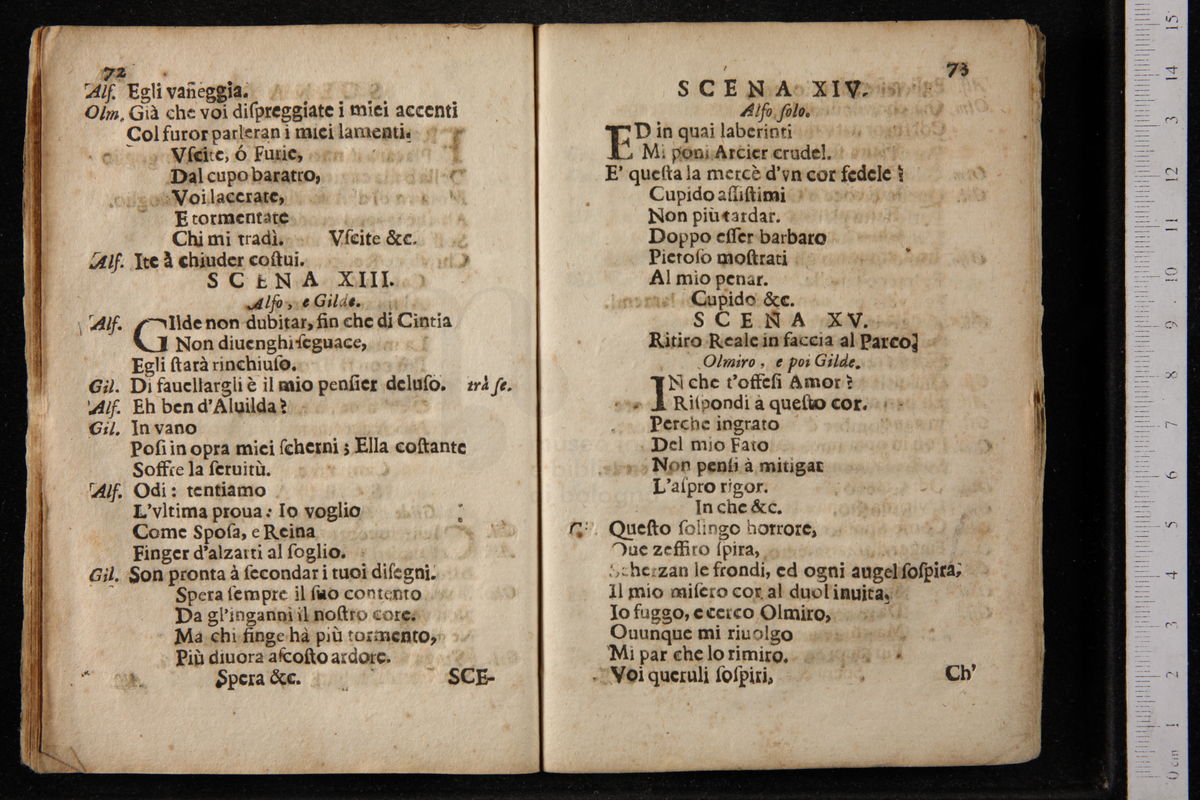 72
Alf. Egli vañeggia.
Olm. Già che voi diſpreggiate i miei accenti
Col furor parleran i miei lamenti.
Vſcite, ó Furie,
Dal cupo baratro,
Voi lacerate,
E tormentate
Chi mi tradì. Vſcite &c.
Alf. Ite à chiuder coſtui.
SCENA XIII.
Alfo, e Gilde.
Alf. GIlde non dubitar, fin che di Cintia
Non diuenghi ſeguace,
Egli ſtarà rinchiuſo.
Gil. Di fauellargli è il mio penſier deluſo. trà ſe.
Alf. Eh ben d'Aluilda?
Gil. In vano
Poſi in opra miei ſcherni; Ella coſtante
Soffre la ſeruitù.
Alf. Odi: tentiamo
L'vltima proua: Io voglio
Come Spoſa, e Reina
Finger d'alzarti al ſoglio.
Gil. Son pronta à ſecondar i tuoi diſegni.
Spera ſempre il ſuo contento
Da gl'inganni il noſtro core.
Ma chi finge hà più tormento,
Più diuora aſcoſto ardore.
Spera &c. SCE-
73
SCENA XIV.
Alfo ſolo.
ED in quai laberinti
Mi poni Arcier crudel.
E' queſta la mercè d'vn cor fedele?
Cupido aſſiſtimi
Non più tardar.
Doppo eſſer barbaro
Pietoſo moſtrati
Al mio penar.
Cupido &c.
SCENA XV.
Ritiro Reale in faccia al Parco.
Olmiro, e poi Gilde.
IN che t'offeſi Amor?
Riſpondi à queſto cor.
Perche ingrato
Del mio Fato
Non penſi à mitigar
L'aſpro rigor.
In che &c.
Queſto ſolingo horrore,
Oue zeffiro ſpira,
Scherzan le frondi, ed ogni augel ſoſpira,
Il mio miſero cor al duol inuita,
Io fuggo, e cerco Olmiro,
Ouunque mi riuolgo
Mi par che lo rimiro.
Voi queruli ſoſpiri,
Ch'
0 cm 1 2 3 4 5 6 7 8 9 10 11 12 13 14 15